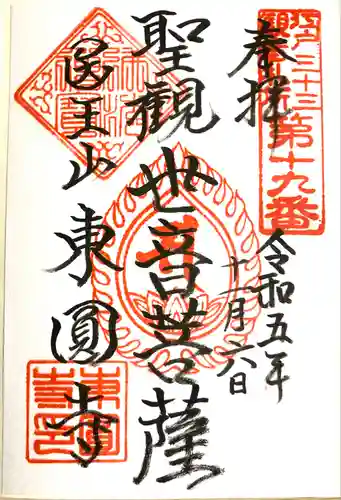 江戸三十三
観音札所第十九番
奉拝
令和五年
十一月六日
聖観世音菩薩
医王山
東圓寺
東圓寺印